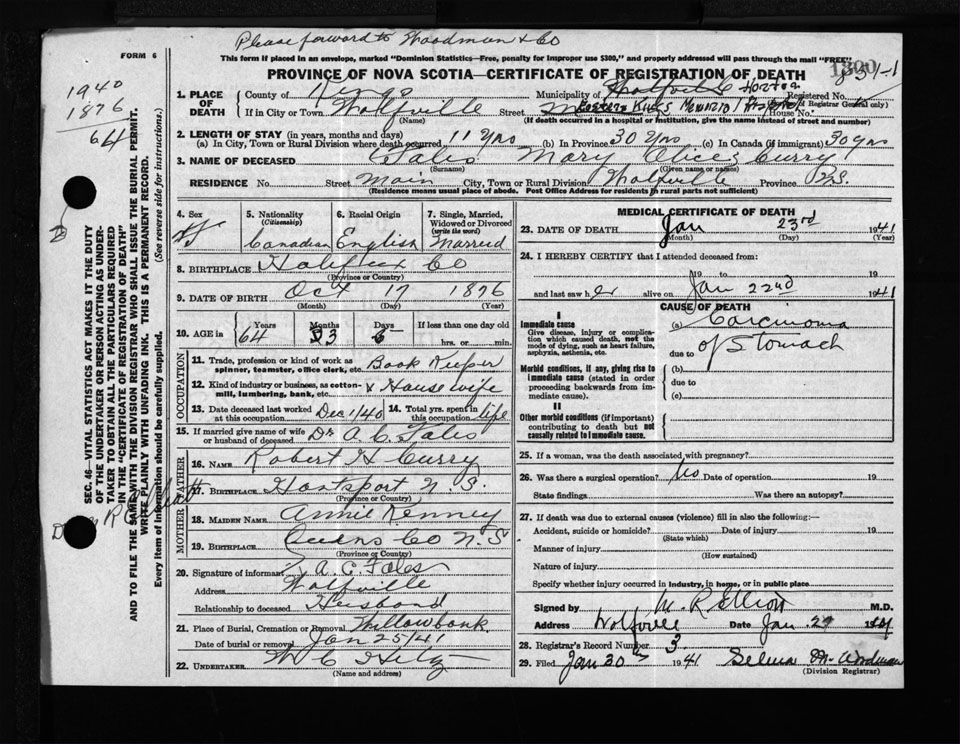 Please forward to Woodman & Co
FORM 6
This form if placed in an envelope, marked "Dominion Statistics—Free, penalty for improper use $300," and properly addressed will pass through the mail "FREE"
PROVINCE OF NOVA SCOTIA—CERTIFICATE OF REGISTRATION OF DEATH
1940
1876
64
1. PLACE OF DEATH
County of Kings
Municipality of Wolfville Horton
Registered No.
(For use of Registrar General only)
If in City or Town Wolfville
(Name)
Street Eastern Kings Memorial Hospital House No.
(If death occurred in a hospital or institution, give the name instead of street and number)
2. LENGTH OF STAY (in years, months and days)
(a) In City, Town or Rural Division where death occurred 11 yrs (b) In Province 30 yrs (c) In Canada (if immigrant) 30 yrs
3. NAME OF DECEASED Fales Mary Alice Curry
(Surname) (Given name or names)
RESIDENCE No. Street Main City, Town or Rural Division Wolfville Province N.S.
(Residence means usual place of abode. Post Office Address for residents in rural parts not sufficient)
SEC. 46—VITAL STATISTICS ACT MAKES IT THE DUTY
OF THE UNDERTAKER OR PERSON ACTING AS UNDER-
TAKER TO OBTAIN ALL THE PARTICULARS REQUIRED
IN THE "CERTIFICATE OF REGISTRATION OF DEATH"
AND TO FILE THE SAME WITH THE DIVISION REGISTRAR WHO SHALL ISSUE THE BURIAL PERMIT.
WRITE PLAINLY WITH UNFADING INK. THIS IS A PERMANENT RECORD.
Every item of information should be carefully supplied. (See reverse side for instructions.)
4. Sex F
5. Nationality (Citizenship) Canadian
6. Racial Origin English
7. Single, Married, Widowed or Divorced (write the word) Married
8. BIRTHPLACE Halifax Co
(Province or Country)
9. DATE OF BIRTH Oct 17 1876
(Month) (Day) (Year)
10. AGE in Years 64 Months 3 Days 6 If less than one day old
hrs. or min.
OCCUPATION
11. Trade, profession or kind of work as spinner, teamster, office clerk, etc. Book Keeper
12. Kind of industry or business, as cotton-mill, lumbering, bank, etc. & Housewife
13. Date deceased last worked at this occupation Dec 1/40
14. Total yrs. spent in this occupation life
15. If married give name of wife or husband of deceased Dr A. C. Fales
FATHER
16. NAME Robert H Curry
17. BIRTHPLACE Hantsport N.S.
(Province or Country)
MOTHER
18. MAIDEN NAME Annie Kenney
19. BIRTHPLACE Queens Co N.S
(Province or Country)
20. Signature of informant A. C. Fales
Address Wolfville
Relationship to deceased Husband
21. Place of Burial, Cremation or Removal Willowbank
Date of burial or removal Jan 25/41
22. UNDERTAKER
(Name and address)
MEDICAL CERTIFICATE OF DEATH
23. DATE OF DEATH Jan 23rd 1941
(Month) (Day) (Year)
24. I HEREBY CERTIFY that I attended deceased from:
19 to 19
and last saw her alive on Jan 22nd 1941
CAUSE OF DEATH
I
Immediate cause
Give disease, injury or complication which caused death, not the mode of dying, such as heart failure, asphyxia, asthenia, etc.
(a) Carcinoma
due to of Stomach
Morbid conditions, if any, giving rise to immediate cause (stated in order proceeding backwards from immediate cause).
(b)
due to
(c)
II
Other morbid conditions (if important) contributing to death but not causally related to immediate cause.
25. If a woman, was the death associated with pregnancy?
26. Was there a surgical operation? No Date of operation 19
State findings Was there an autopsy?
27. If death was due to external causes (violence) fill in also the following:—
Accident, suicide or homicide? Date of injury 19
(State which)
Manner of injury
(How sustained)
Nature of injury
Specify whether injury occurred in industry, in home, or in public place
Signed by M. R. Elliott M.D.
Address Wolfville Date Jan. 29 1941
28. Registrar's Record Number 3
29. Filed Jan 30th 1941 Selina M. Woodman
(Division Registrar)